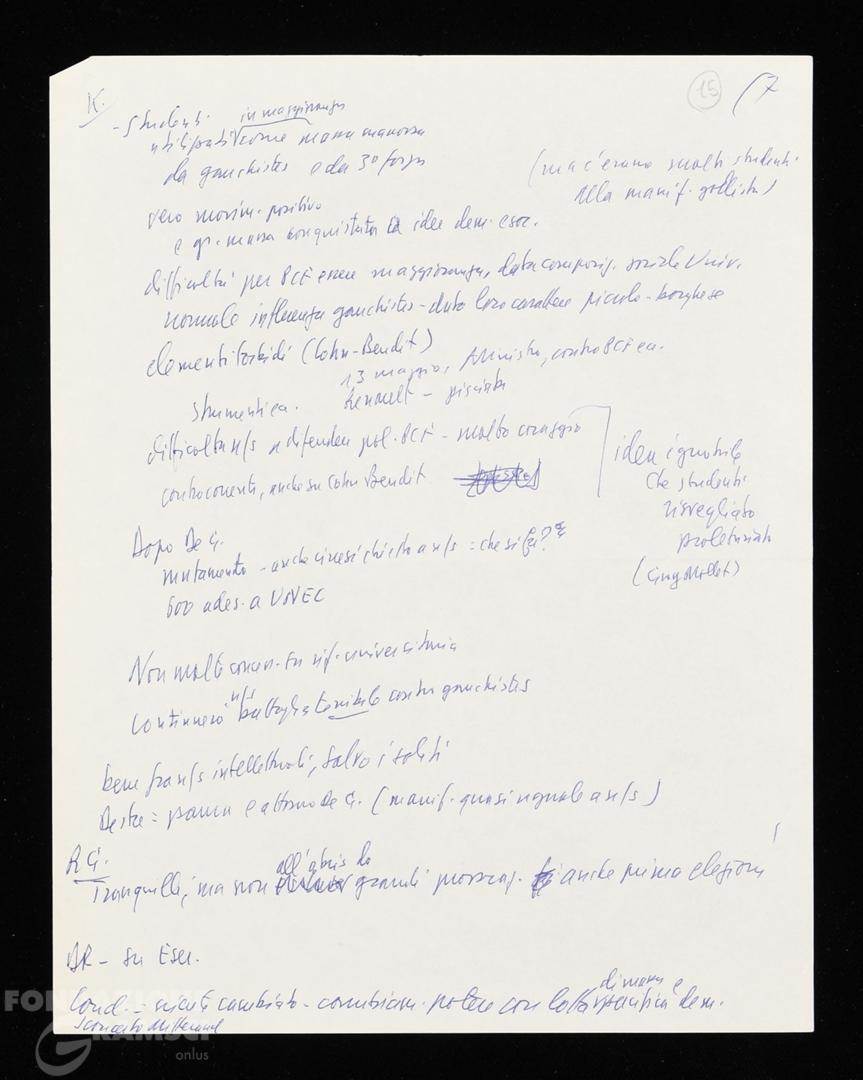 15
17
K.
- Studenti in maggioranza
utilizzati come massa manovra
da gauchistes e da 3ª forza
(ma c'erano molti studenti
alla manif. gollista)
vero movim. positivo
e gr. massa conquistata a idee dem. e soc.
difficoltà per PCF essere maggioranza, data composiz. sociale Univ.
normale influenza gauchistes - dato loro carattere piccolo-borghese
elementi torbidi (Cohn-Bendit)
13 maggio, Ministro, contro PCF ecc.
strument. ecc. Renault -
difficoltà n/s a difendere pol. PCF - molto coraggio
controcorrente, anche su Cohn Bendit
idea ignobile
che studenti
risvegliato
proletariato
(Guy Mollet)
Dopo De G.
mutamento - anche cinesi chiesto a n/s = che si fa?
600 ades. a UNEC
Non molte conv. su rif. universitaria
Continuerà n/s battaglia terribile contro gauchistes
bene fra n/s intellettuali, salvo i soliti
Destre = paura e attorno De G. (manif. quasi uguale a n/s)
R G.
Tranquilli, ma non all'abris da grandi provocaz. anche prima elezioni
BR - su Eser.
Cond. - niente cambiato - cambiam. potere con lotta di massa e pacifica dem.
Sconcerto Mitterand
FONDAZIONE
GRAMSCI
onlus